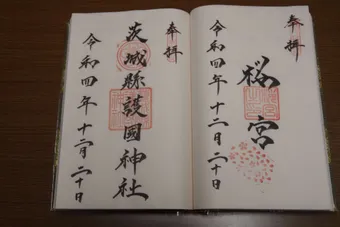 奉拝
桜宮
令和四年十二月二十日
奉拝
茨城縣護國神社
令和四年十二月二十日